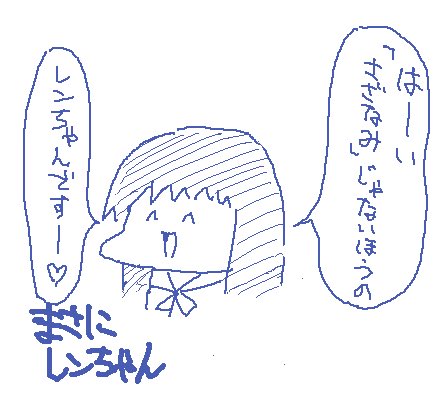 はーい
「さざなみ」じゃないほうの
レンちゃんですー♡
まさに
レンちゃん